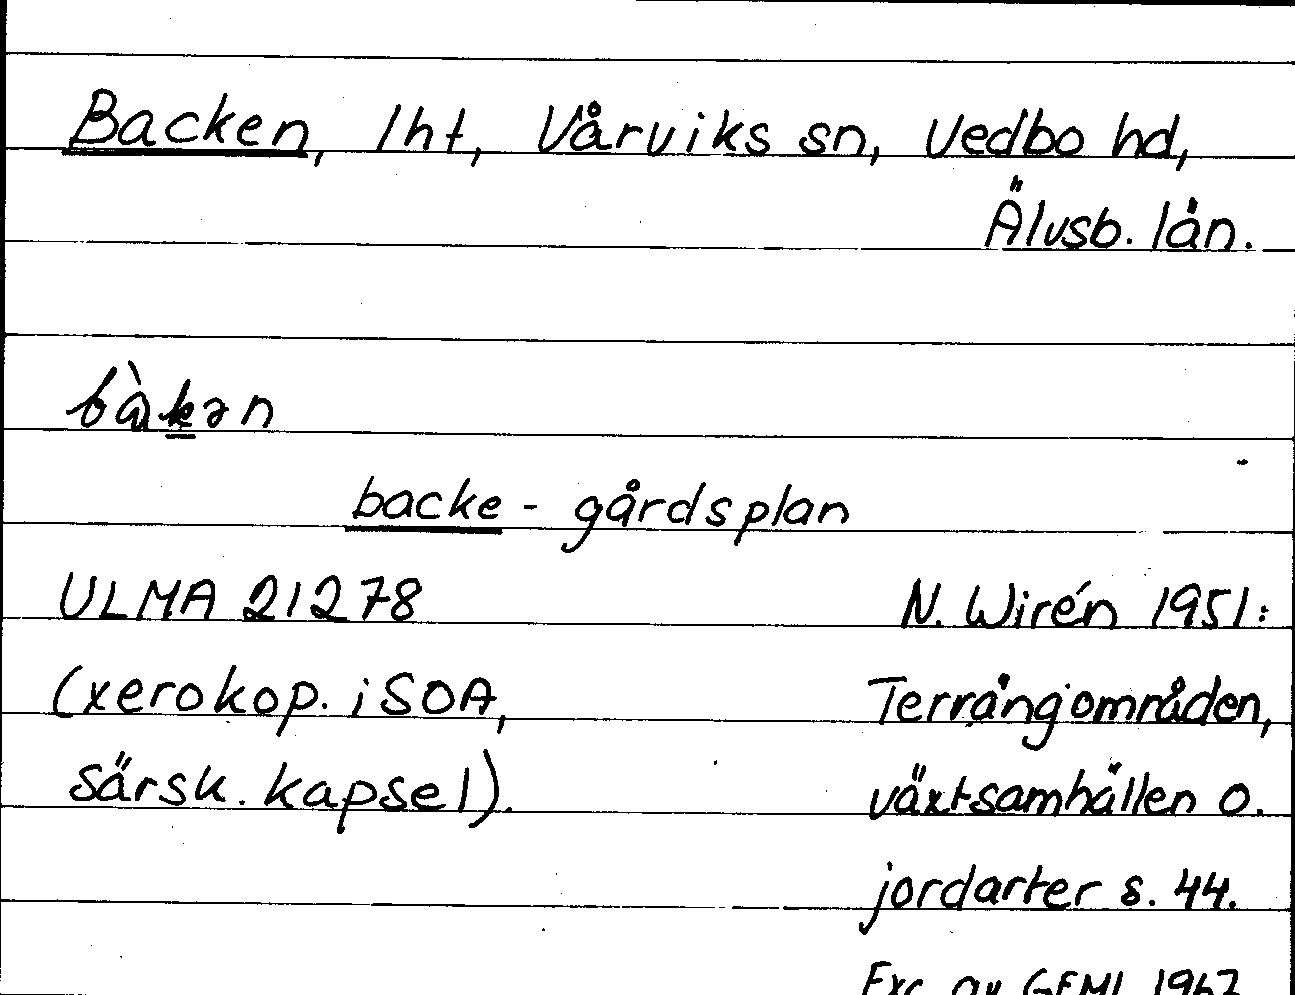 Backen, lht, Vårviks sn, Vedbo hd,
Älvsb. län.
bàkən
backe - gårdsplan
ULMA 21278
N. Wirén 1951:
(xerokop. i SOA,
Terrängområden,
särsk. kapsel).
växtsamhällen o.
jordarter s. 44.
Exc. av GEML 1967